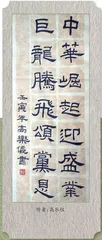 中華崛起迎盛業
巨龍騰飛頌黨恩
壬寅年高樂儀書
作者:高乐仪